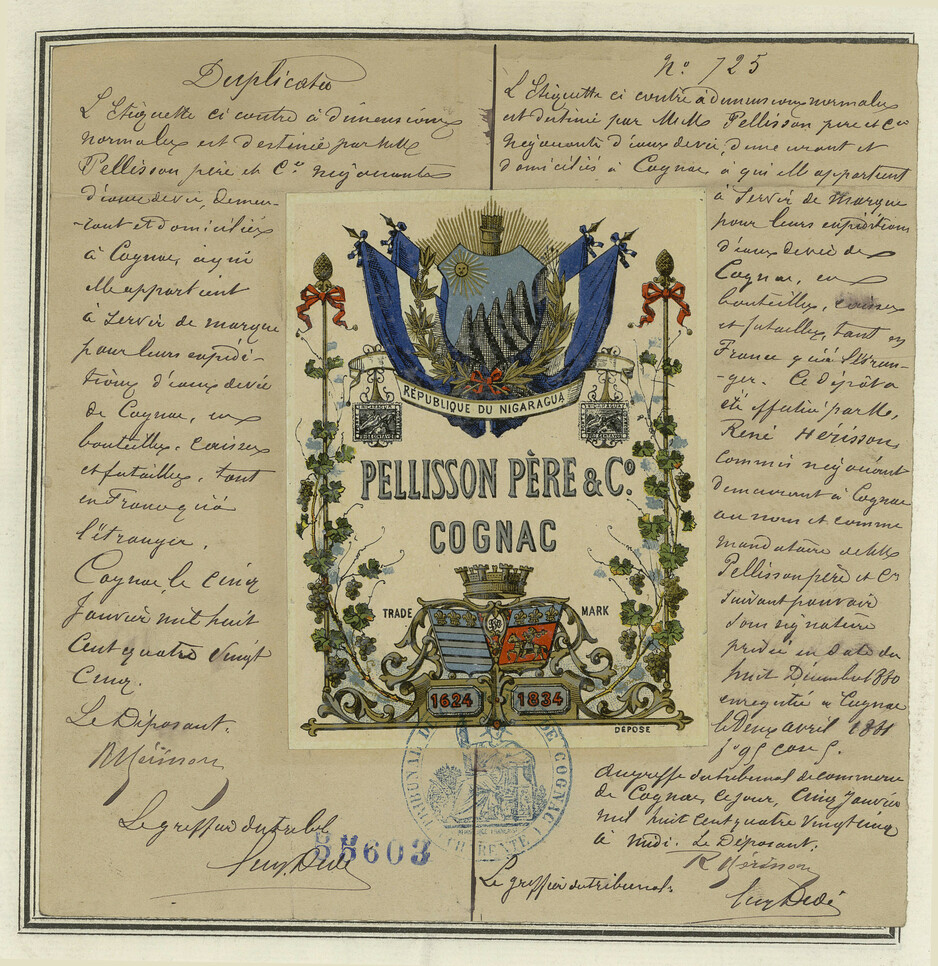 Duplicata
L'Etiquette ci contre à dimensions
normales est destinée par MM
Pellisson père et Co. négociants
d'eaux de vie, demeu-
-rant et domiciliés
à Cognac, à qui
elle appartient
à servir de marque
pour leurs expédi-
tions d'eaux de vie
de Cognac, en
bouteilles, caisses
et futailles, tant
en France qu'à
l'étranger.
Cognac, le cinq
Janvier mil huit
cent quatre vingt
cinq.
Le Déposant.
R Hérisson
Le greffier du tribal
85603
No 725
L'Etiquette ci contre à dimensions normales
est destinée par M.M. Pellisson père et Cie
négociants d'eaux de vie, demeurant et
domiciliés à Cognac à qui elle appartient
à servir de marque
pour leurs expéditions
d'eaux de vie de
Cognac, en
bouteilles, caisses
et futailles, tant en
France qu'à l'étran-
-ger. Ce dépôt a
été effectué par M.
René Hérisson
commis négociant
demeurant à Cognac
au nom et comme
mandataire de MM
Pellisson père et Cie
suivant pouvoir
sous signature
privée en date du
huit Décembre 1880
enregistré à Cognac
le Deux avril 1881
fo 95
Au greffe du tribunal de commerce
de Cognac, ce jour, Cinq Janvier
mil huit cent quatre vingt cinq
à midi. Le Déposant.
R Hérisson
Le greffier du tribunal.
RÉPUBLIQUE DU NIGARAGUA
NICARAGUA
NICARAGUA
PELLISSON PÈRE & Co.
COGNAC
TRADE MARK
1624 1834
DÉPOSÉ
TRIBUNAL DE COGNAC
CHARENTE